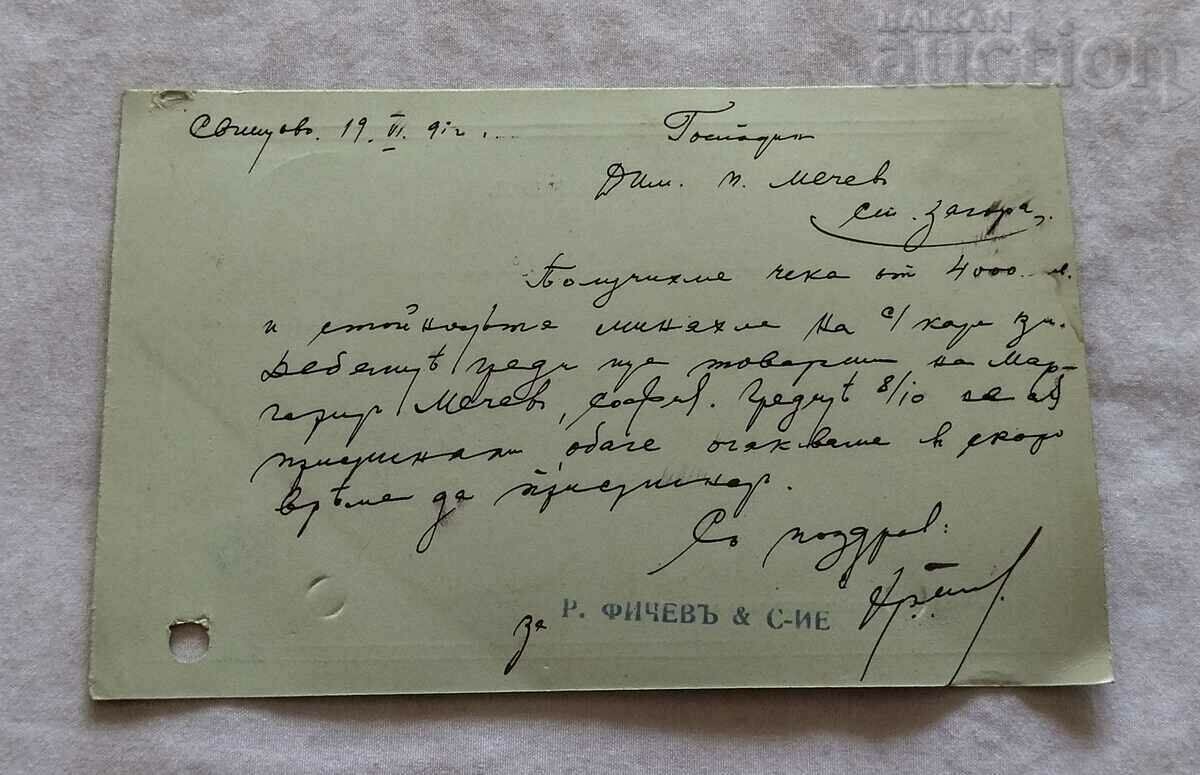 BALKAN
auction
Свищовъ. 19 VI 91г.
Господинъ
Дим. п. Мечевъ
Ст. Загора.
Получихме чека от 4000 л.
и стойностьта минахме на с/ каре
греди ще товарим на Мар-
Мечевъ, София. 8/10 не са
пристинали, обаче очакваме в скоро
врѣме да пристинат.
Съ поздрав:
за Р. ФИЧЕВЪ & С-ИЕ